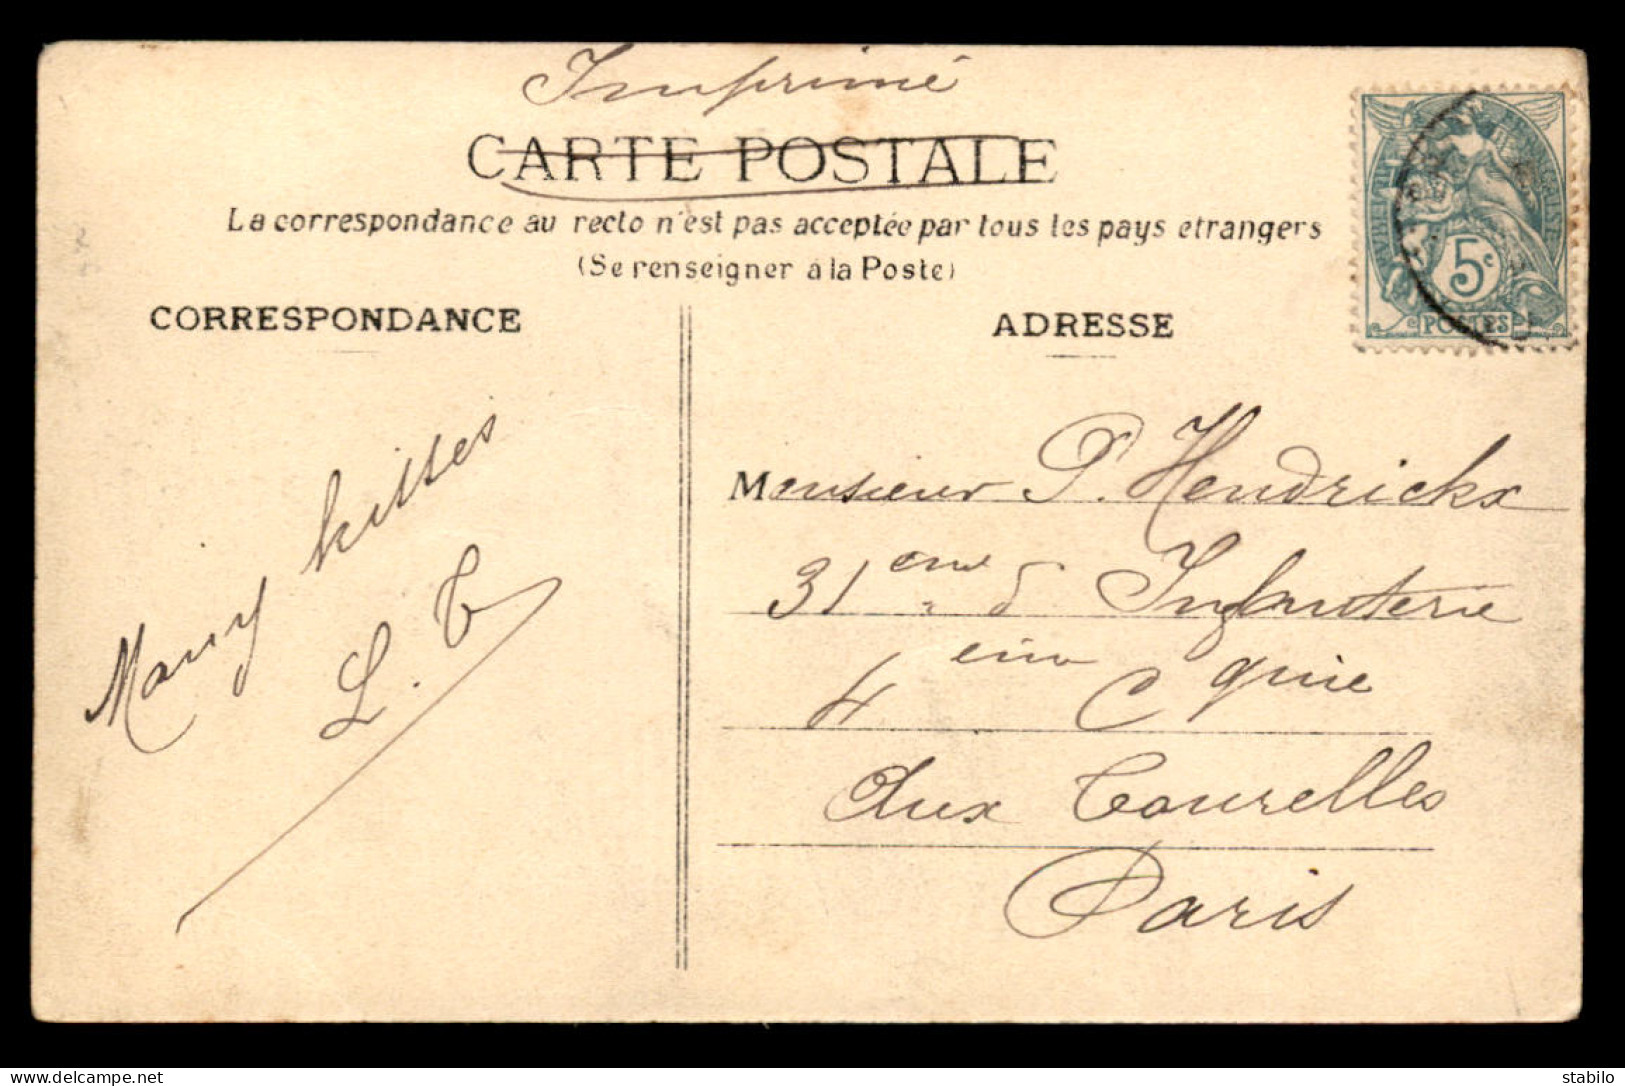 Imprimé
CARTE POSTALE
La correspondance au recto n'est pas acceptée par tous les pays etrangers
(Se renseigner à la Poste)
CORRESPONDANCE
ADRESSE
5c
POSTES
Many kisses
L. T
Monsieur P. Hendrickx
31 eme d' Infanterie
4 eme Cgnie
Aux Tourelles
Paris
delcampe.net
stabilo